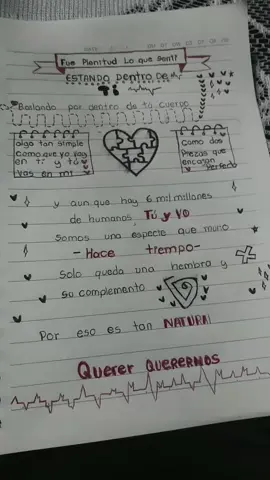 Fue Plenitud Lo que Sentí
ESTANDO DENTRO DE
Ti
Bailando por dentro de tu Cuerpo
algo tan simple
Como que yo voy
en ti y tú
Vas en mi
Como dos
Piezas que
encajan
Perfecto
y aun que hay 6 mil millones
de humanos Tú y Yo
Somos una especie que murió
- Hace tiempo -
Solo queda una hembra y
su complemento
Por eso es tan NATURAL
Querer QUERERNOS